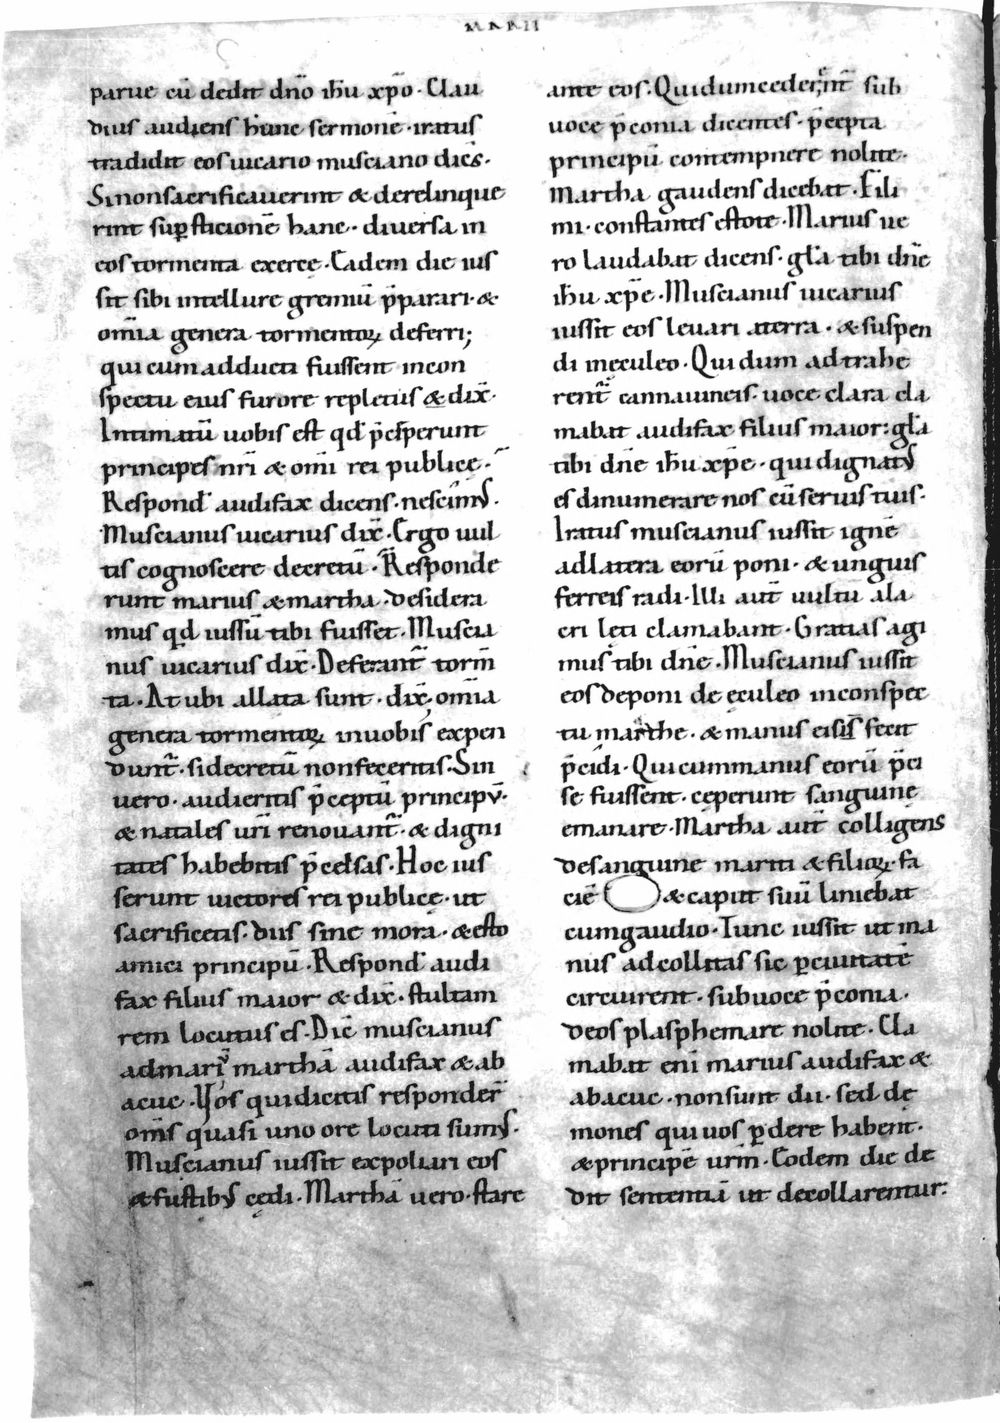 MARII
parue eū dedit dn̄o ih̄u xp̄o · Clau
dius audiens hunc sermonē · iratus
tradidit eos uicario musciano dicēs ·
Si non sacrificauerint & derelinque
rint sup̱sticionē hanc · diuersa in
eos tormenta exerce · Eadem die ius
sit sibi intellure gremiū p̄parari · &
om̄ia genera tormentoꝝ deferri;
qui cum adducti fuissent in con
spectu eius furore repletus & dix̄ ·
Intimatū uobis est qd̄ p̄ceperunt
principes nr̄i & om̄i rei publicę ·
Respond̄ audifax dicens · nescim᷒ ·
Muscianus uicarius dix̄ · Ergo uul
tis cognoscere decretū · Responde
runt marius & martha · desidera
mus qd̄ iussū tibi fuisset · Muscia
nus uicarius dix̄ · Deferant᷑ torm̄
ta · At ubi allata sunt · dix̄; om̄ia
genera tormentoꝝ in uobis expen
dunt᷑ · si decretū non feceritis · Sin
uero · audieritis p̄ceptū principū ·
& natales ur̄i renouant᷑ · & digni
tates habebitis p̄celsas · Hoc ius
serunt uictores rei publicę · ut
sacrificetis · diis sine mora · & esto
amici principū · Respond̄ audi
fax filius maior & dix̄ · stultam
rem locutus es · Dic̄ muscianus
ad mariū marthā audifax & ab
acuc · Vos quid dicitis responder̄
om̄s quasi uno ore locuti sum᷒ ·
Muscianus iussit expoliari eos
& fustib᷒ cędi · Marthā uero · stare
ante eos · Qui dum cederent᷑ sub
uoce p̄conia dicentes · p̄cepta
principū contempnere nolite ·
Martha gaudens dicebat · Fili
mi · constantes estote · Marius ue
ro laudabat dicens · gl̄a tibi dn̄e
ih̄u xp̄e · Muscianus uicarius
iussit eos leuari a terra · & suspen
di in ęculeo · Qui dum adtrahe
rent᷑ cannauineis · uoce clara cla
mabat audifax filius maior : gl̄a
tibi dn̄e ih̄u xp̄e · qui dignat᷒
es dinumerare nos cū seruis tuis ·
Iratus muscianus iussit ignē
ad latera eorū poni · & unguis
ferreis radi · Illi aut̄ uultu ala
cri lęti clamabant · Gratias agi
mus tibi dn̄e · Muscianus iussit
eos deponi de ęculeo in conspec
tu marthe · & manus eis is̄ fecit
p̄cidi · Qui cum manus eorū p̄ci
se fuissent · ceperunt sanguinę
emanare · Martha aut̄ colligens
de sanguine mariti & filioꝝ · fa
ciē & caput suū liniebat
cum gaudio · Tunc iussit ut ma
nus ad collitas sic p̱ ciuitatē
circuirent · sub uoce p̄conia ·
deos plasphemare nolite · Cla
mabat eni marius audifax &
abacuc · non sunt dii · sed dę
mones qui uos p̱dere habent ·
& principē urm̄ · Eodem die de
dit sententiā ut decollarentur: